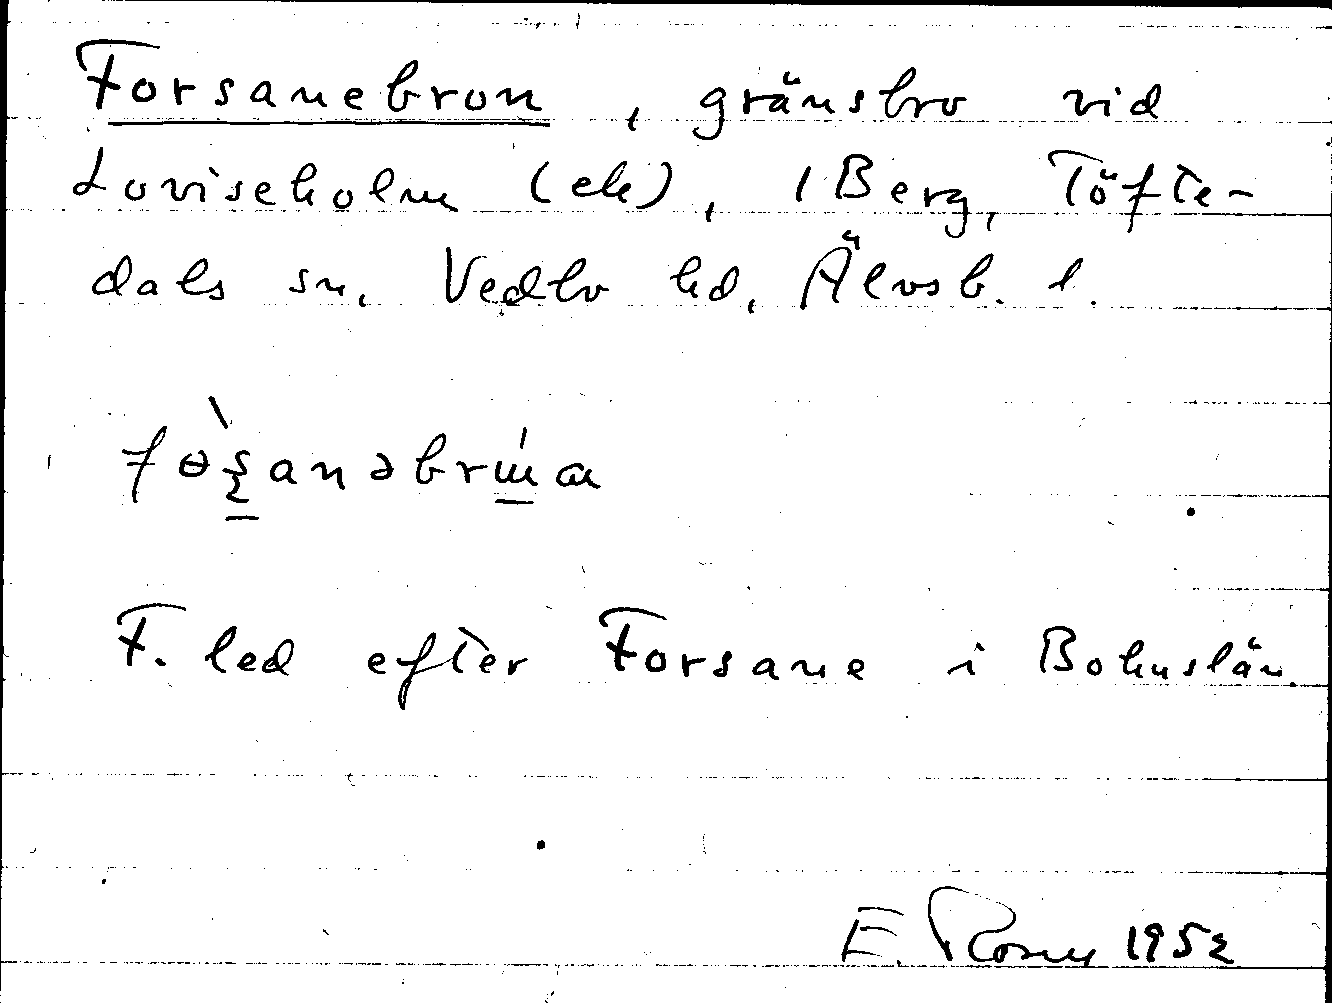 Forsanebron, gränsbro vid
Loviseholm (ek), 1 Berg, Töfte-
dals sn, Vedbo hd, Älvsb. l.
F. led efter Forsane i Bohuslän.
E. 1952